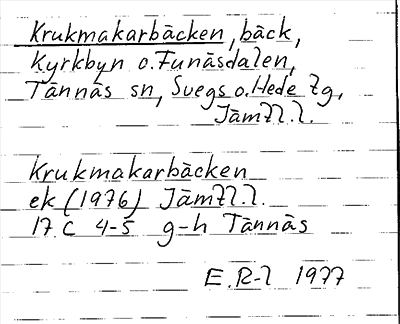 Krukmakarbäcken, bäck,
Kyrkbyn o. Funäsdalen,
Tännäs sn, Svegs o. Hede tg,
Jämtl. l.
Krukmakarbäcken
ek (1976) Jämtl. l.
17 C 4-5 g-h Tännäs
E. R-l 1977